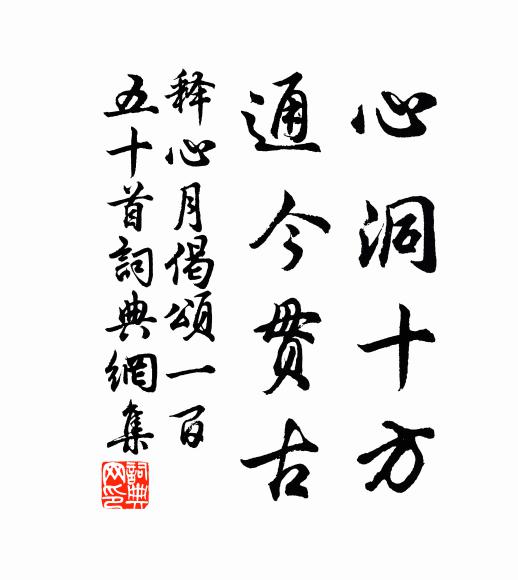 心洞十方
通今贯古
释心月偈颂一百
五十首詞典網集
詞典网印